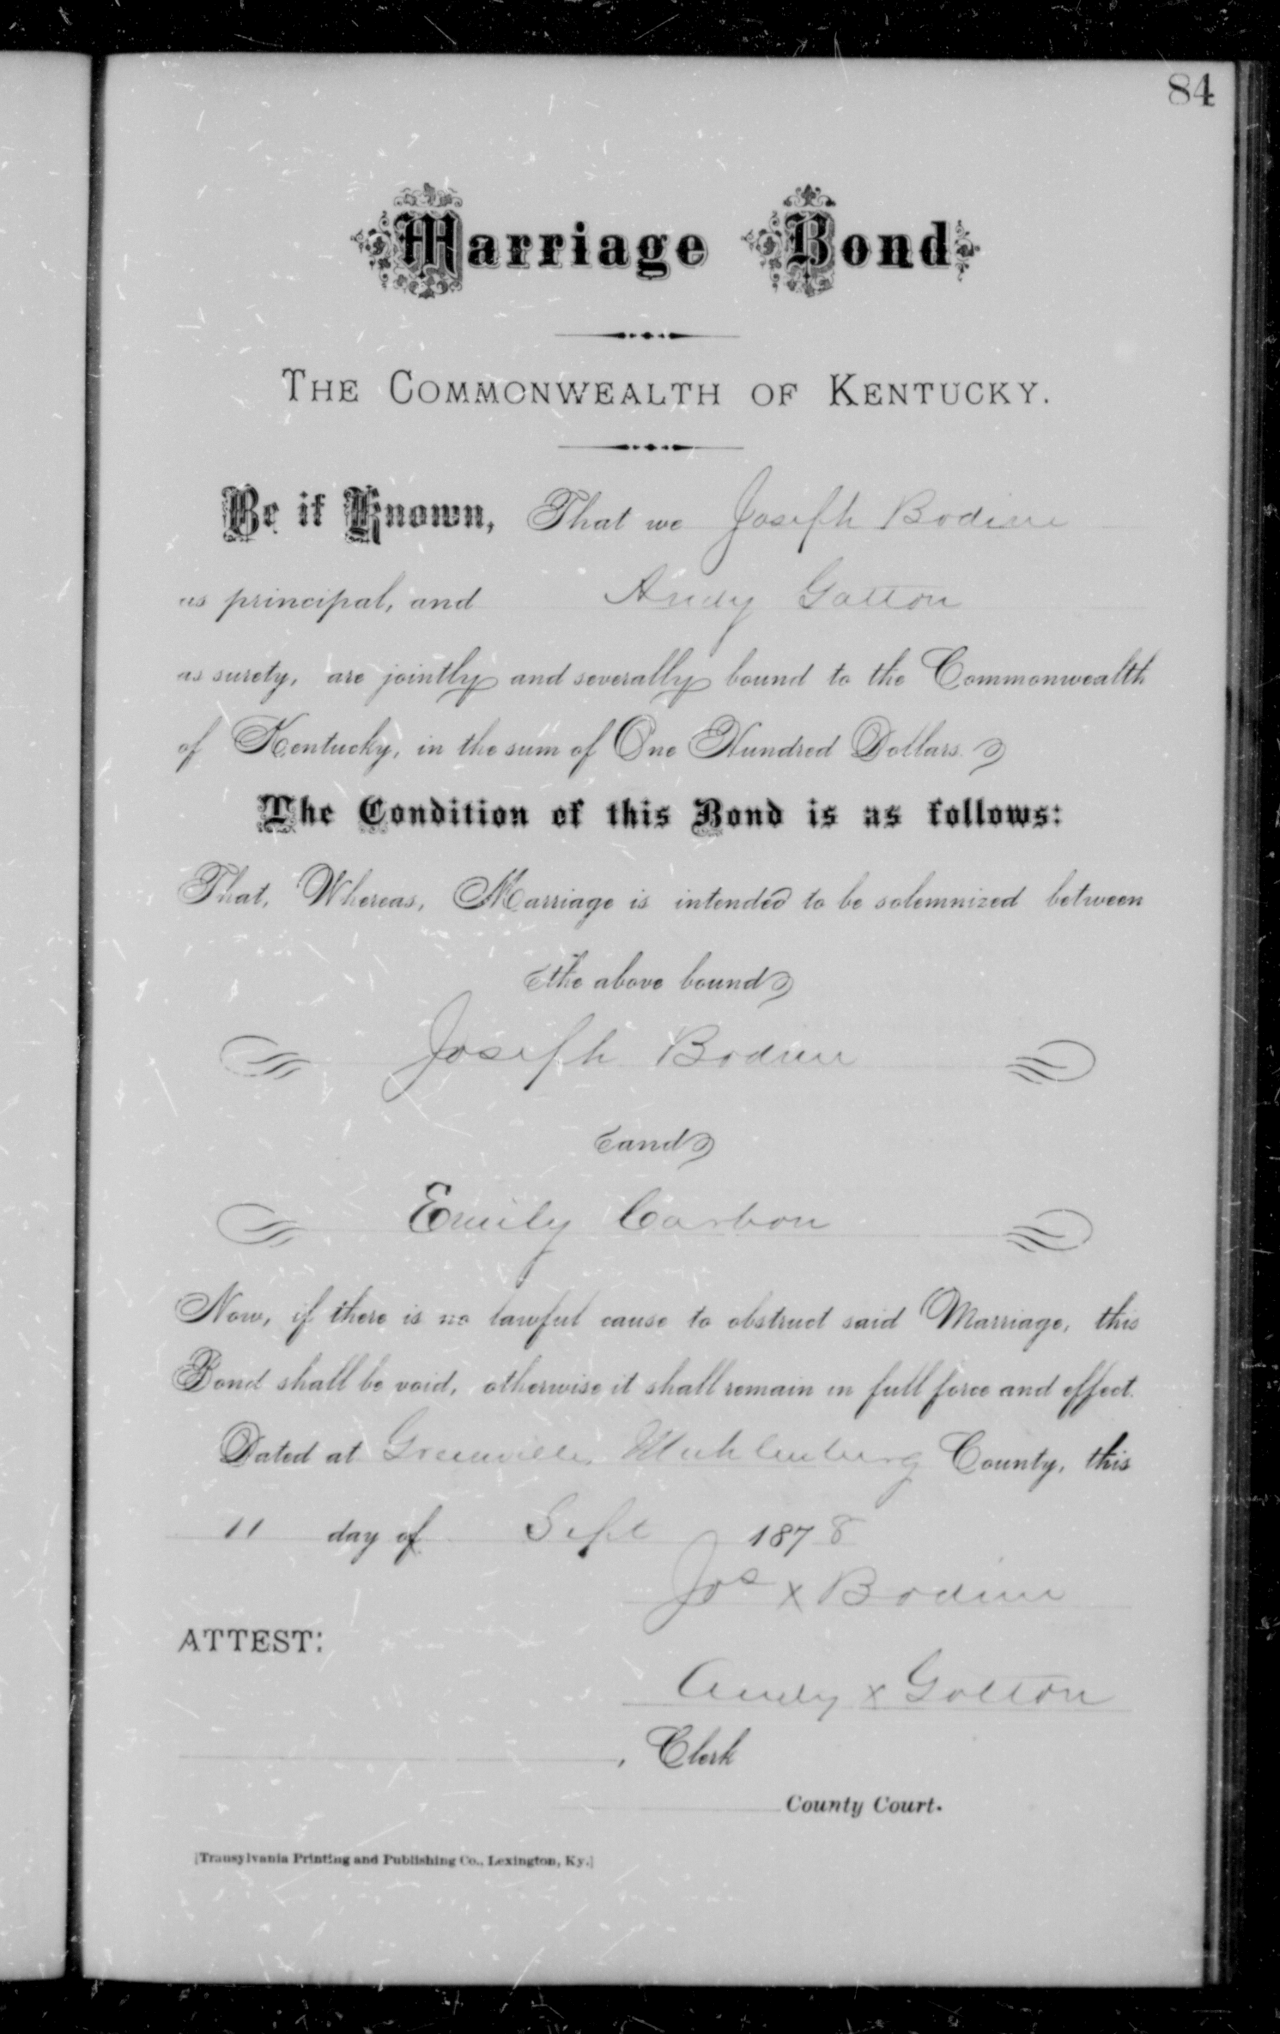 84
Marriage Bond
THE COMMONWEALTH OF KENTUCKY.
Be it Known, That we Joseph Bodine
as principal, and Andy Gatton
as surety, are jointly and severally bound to the Commonwealth
of Kentucky, in the sum of One Hundred Dollars.
The Condition of this Bond is as follows:
That, Whereas, Marriage is intended to be solemnized between
the above bound
Joseph Bodine
and
Emily Carbon
Now, if there is no lawful cause to obstruct said Marriage, this
Bond shall be void, otherwise it shall remain in full force and effect.
Dated at Greenville, Muhlenburg County, this
11 day of Sept 1878
Jos x Bodine
ATTEST:
Andy x Gatton
, Clerk
County Court.
[Transylvania Printing and Publishing Co., Lexington, Ky.]